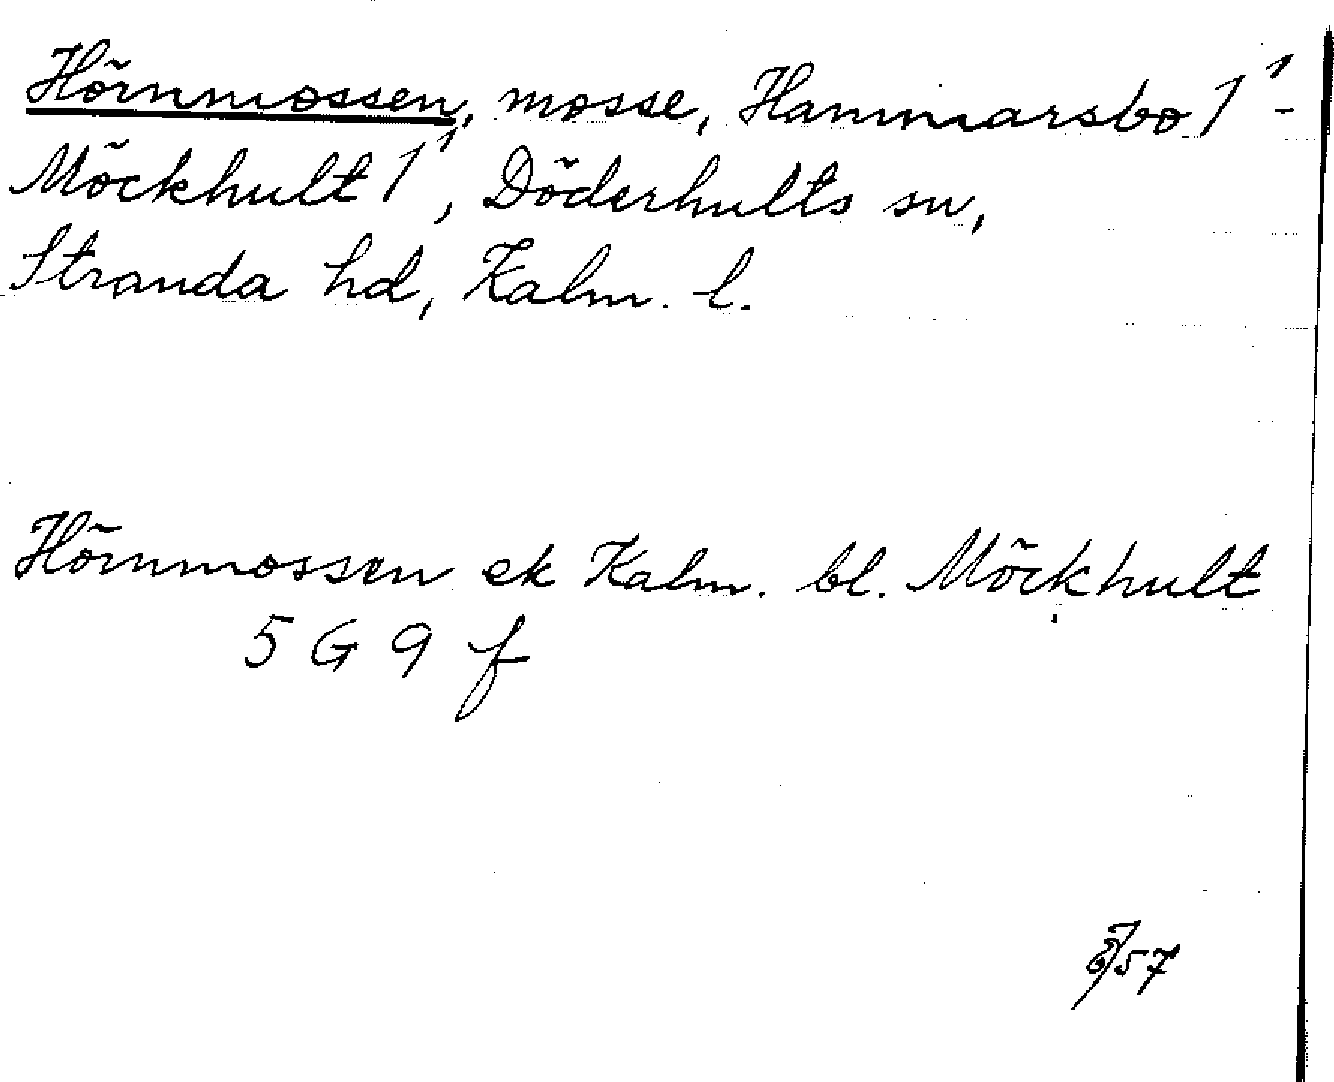 Hörnmossen, mosse, Hammarsbo 1¹-
Möckhult 1¹, Döderhults sn,
Stranda hd, Kalm. l.
Hörnmossen ek Kalm. bl. Möckhult
5 G 9 f